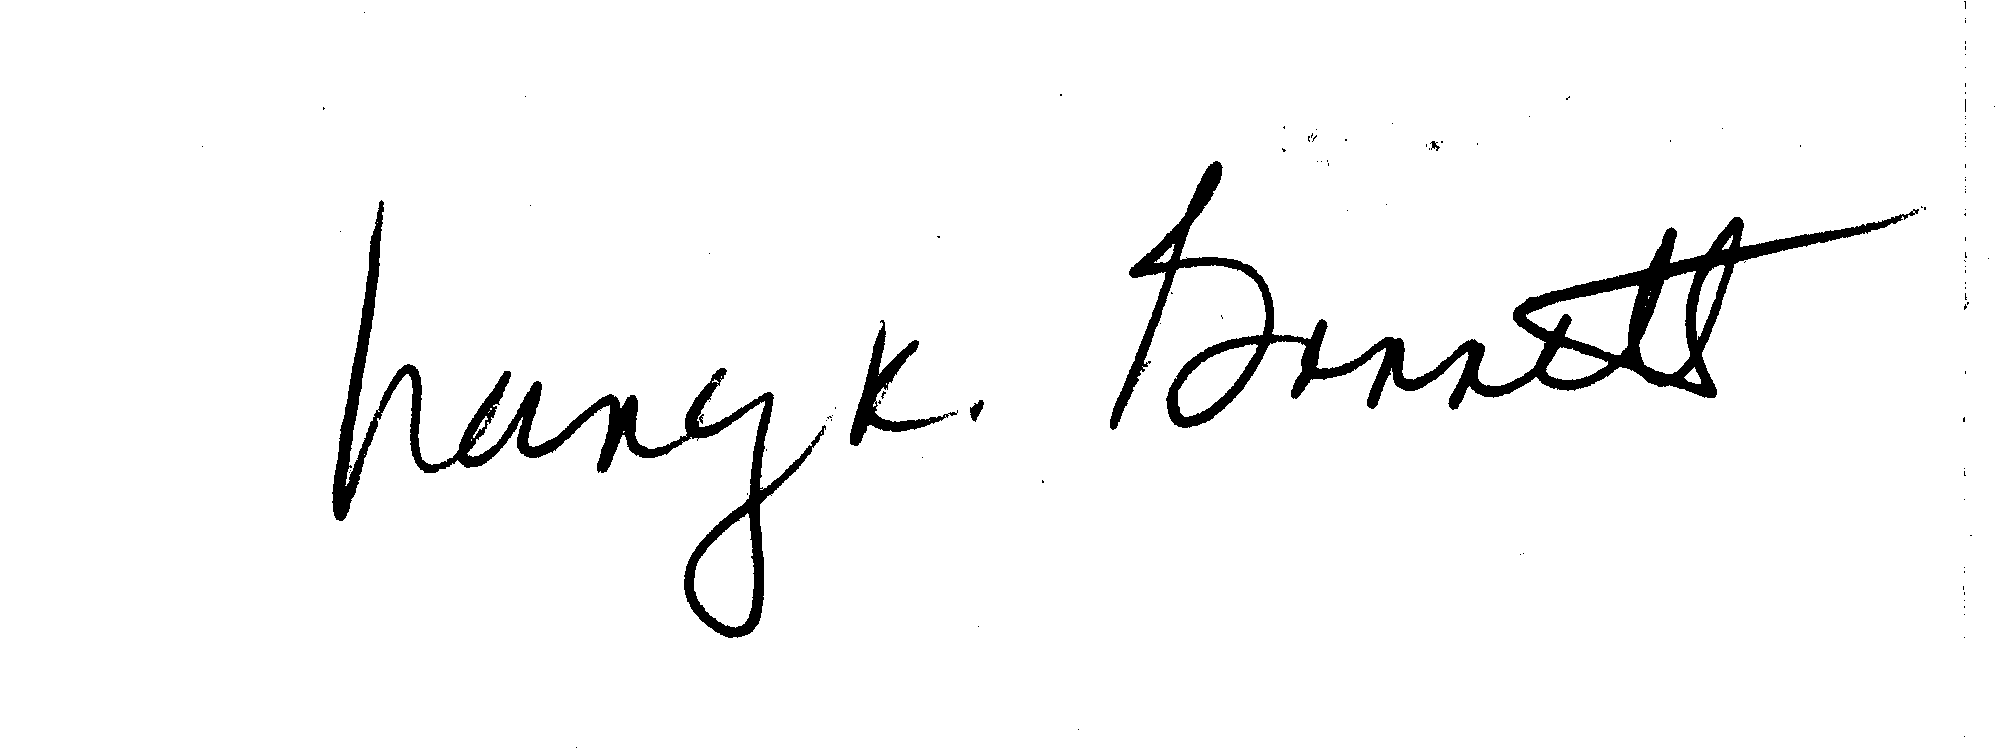 Nancy K. Bennett